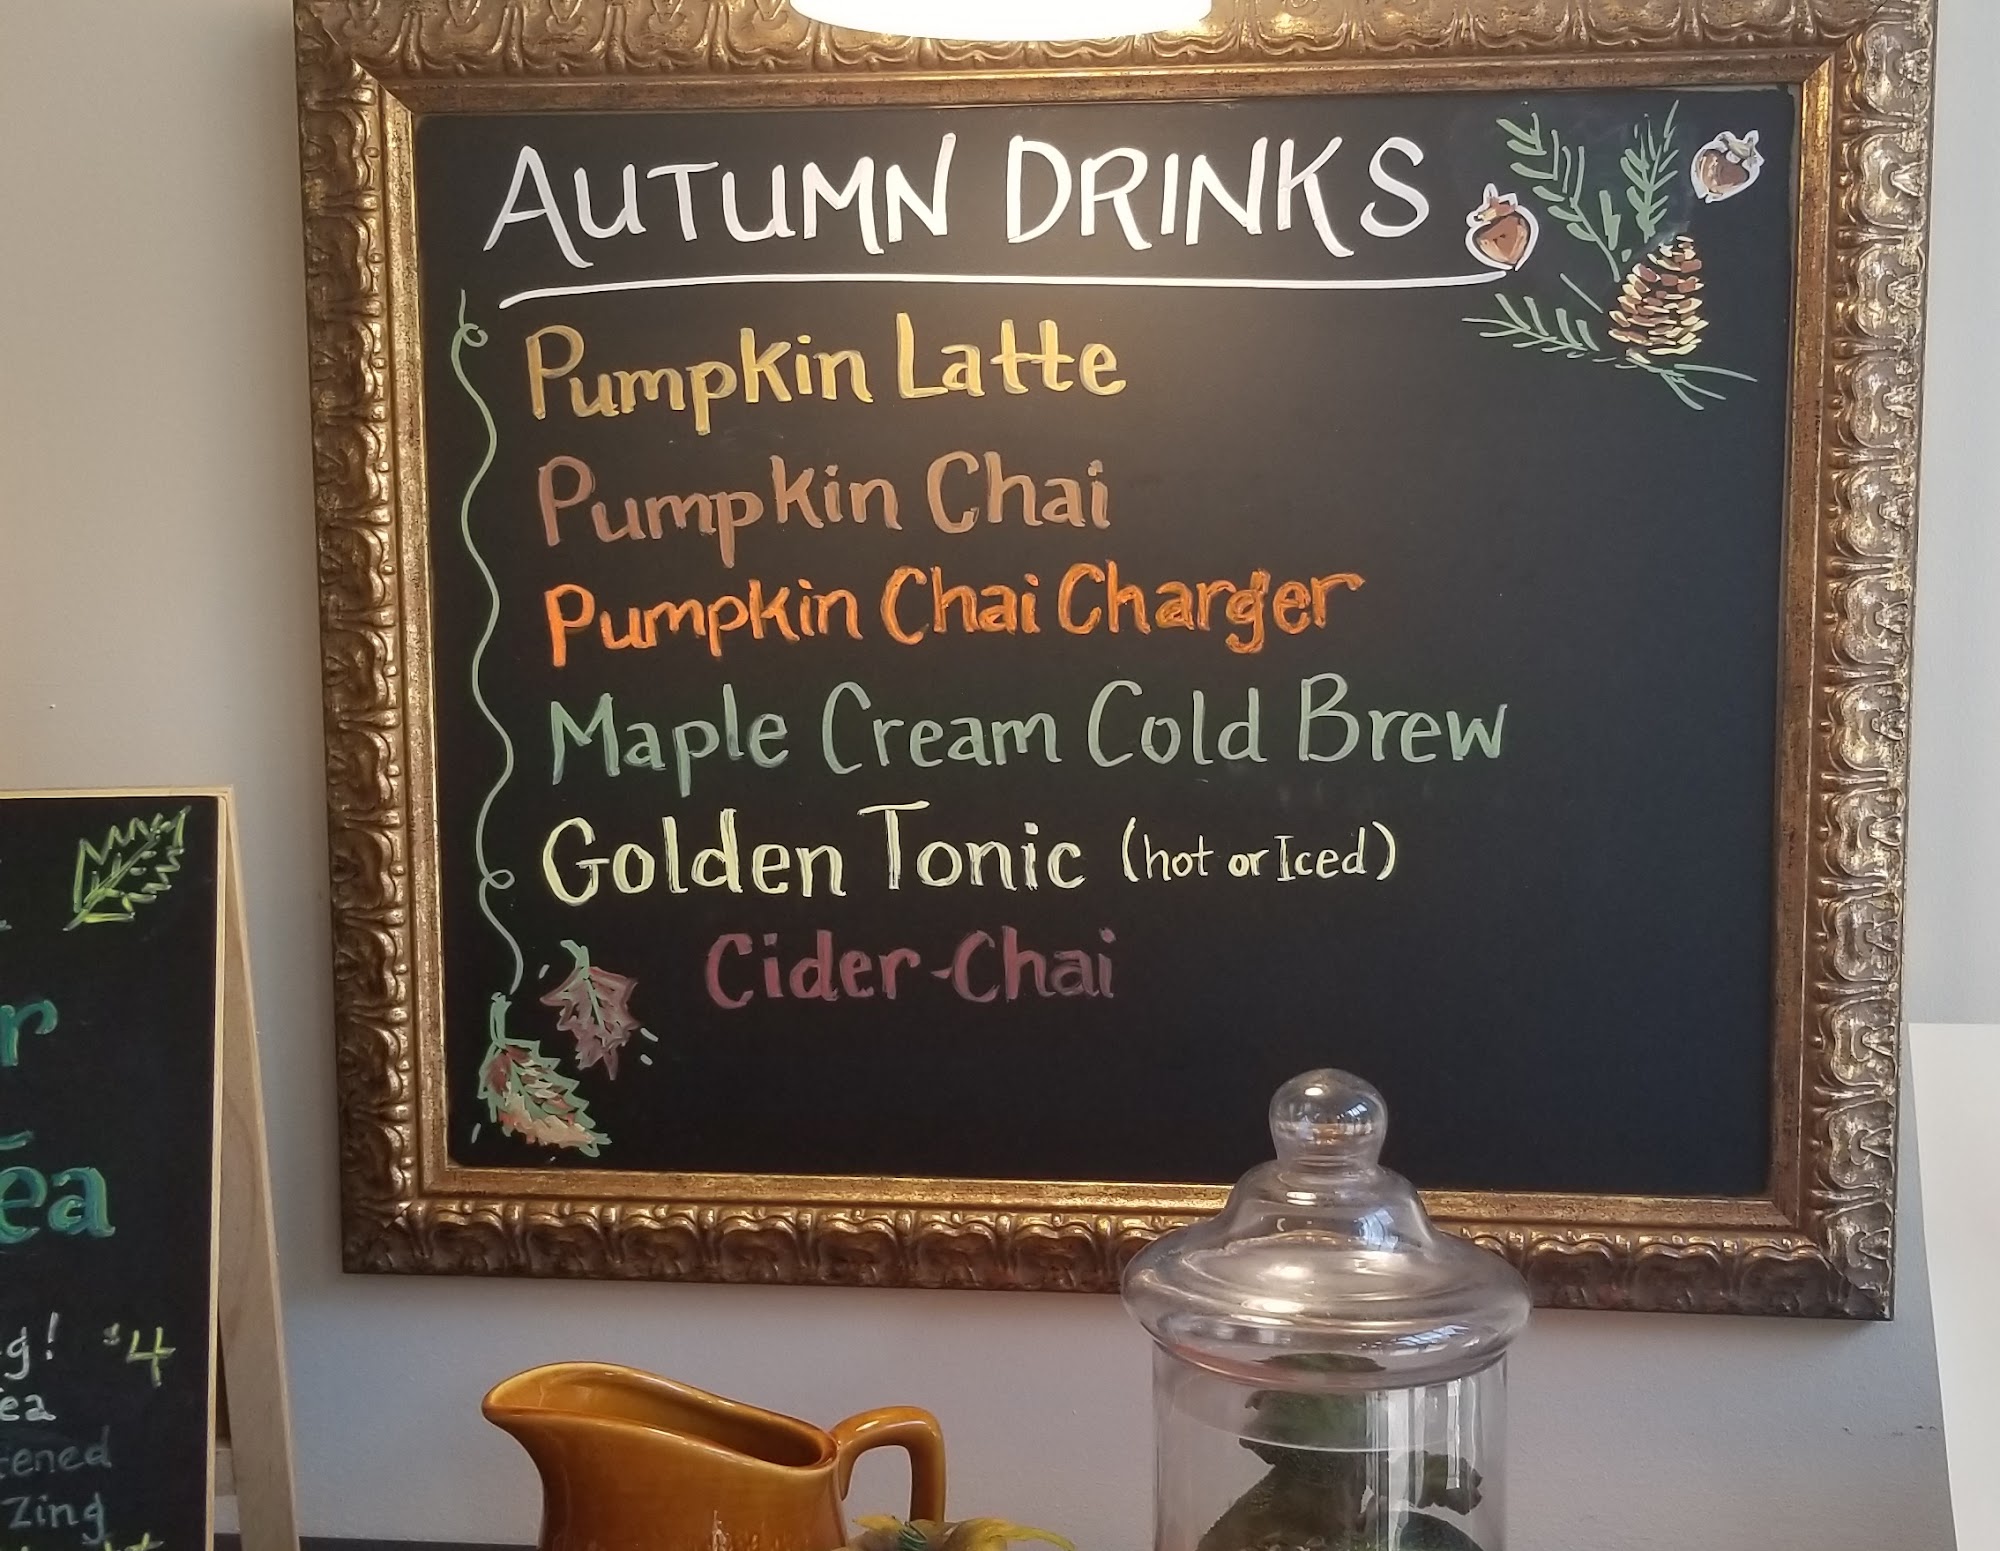 AUTUMN DRINKS
Pumpkin Latte
Pumpkin Chai
Pumpkin Chai Charger
Maple Cream Cold Brew
Golden Tonic (hot or Iced)
Cider-Chai
$4
Zing